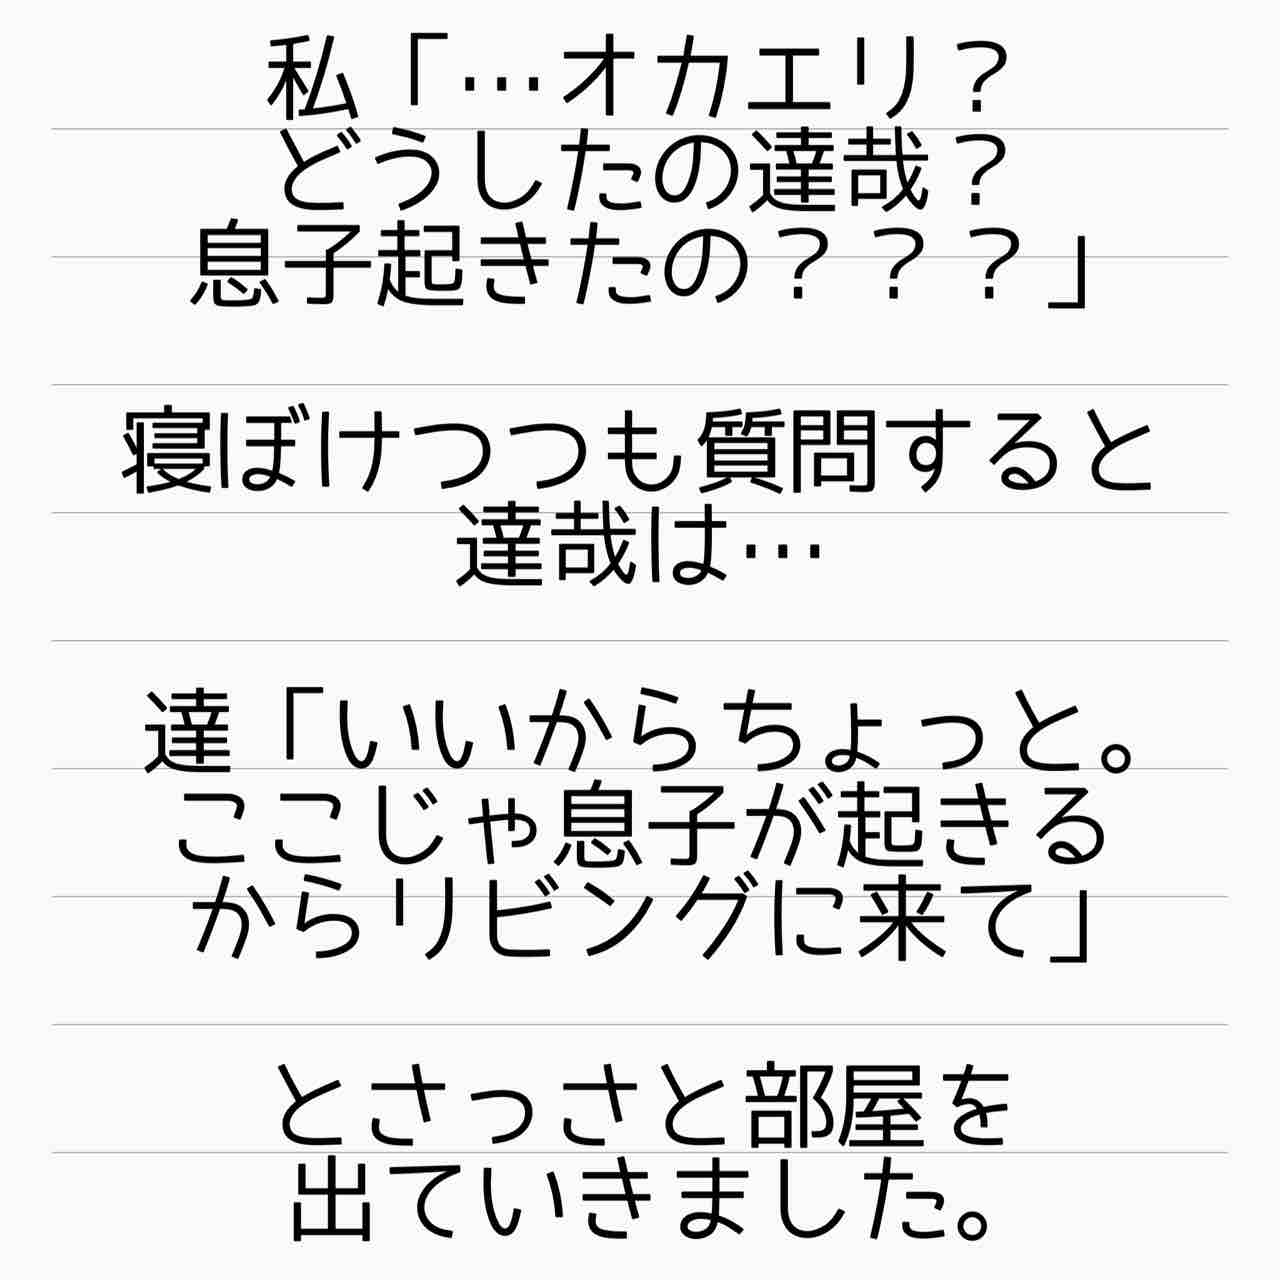 私「…オカエリ？
どうしたの達哉？
息子起きたの？？？」
寝ぼけつつも質問すると
達哉は…
達「いいからちょっと。
ここじゃ息子が起きる
からリビングに来て」
とさっさと部屋を
出ていきました。